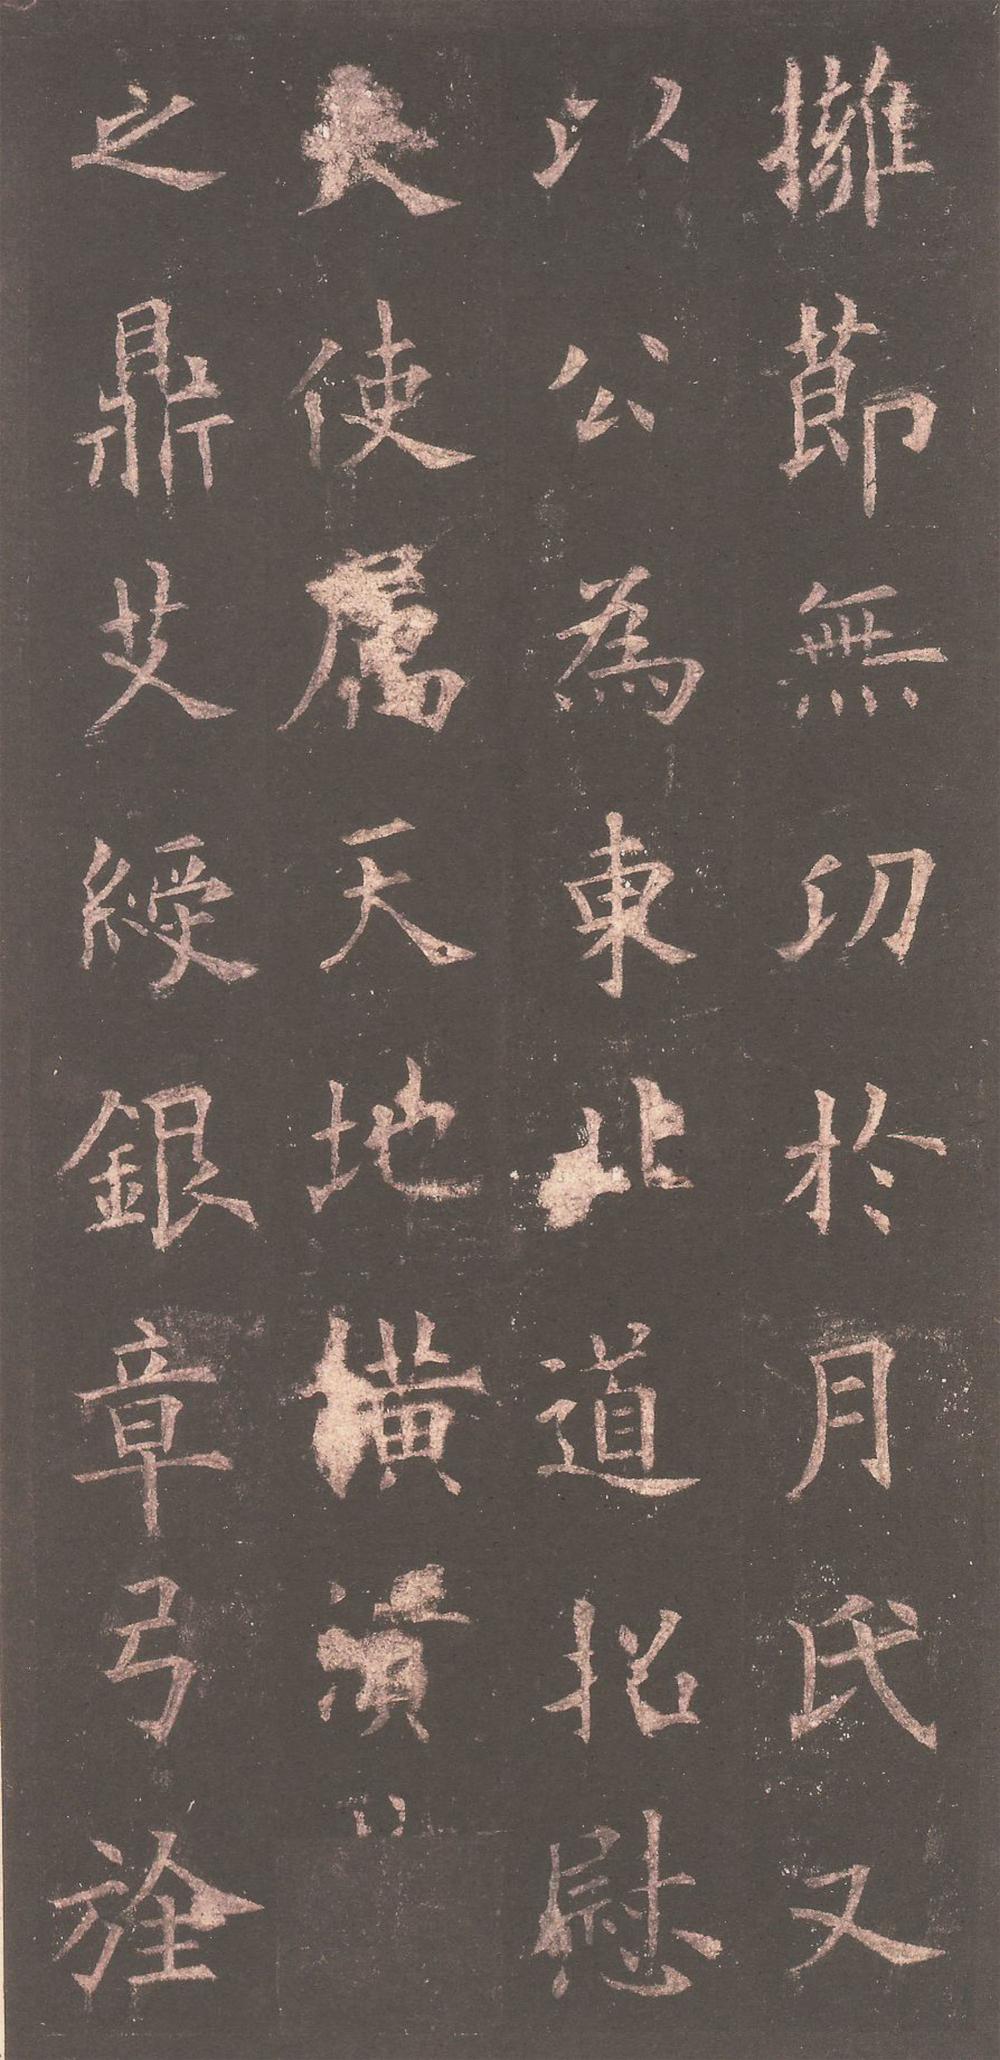 擁節無㓛於月氏又
以公為東北道招慰
大使屬天地橫潰
之鼎艾綬銀章弓旌